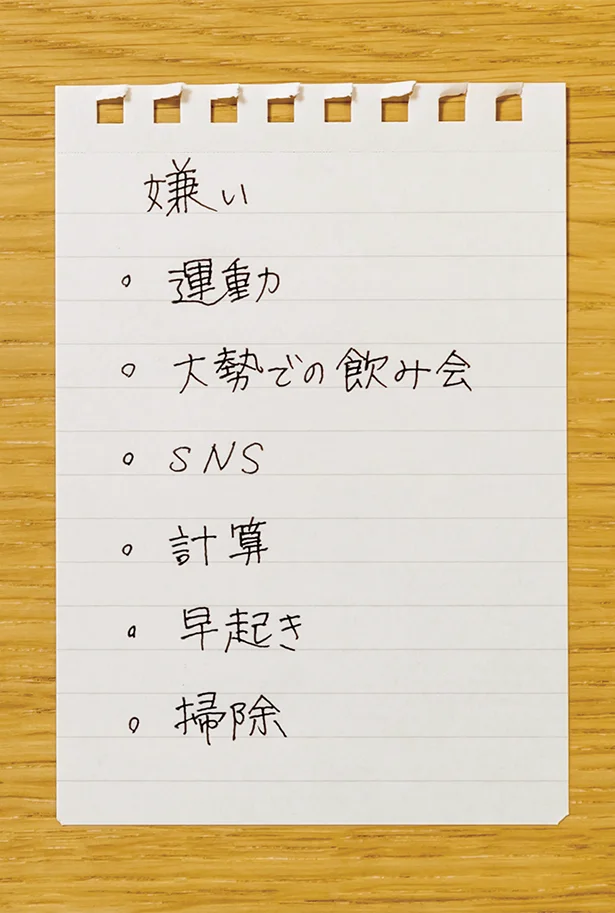 嫌い
。運動
。大勢での飲み会
。SNS
。計算
。早起き
。掃除